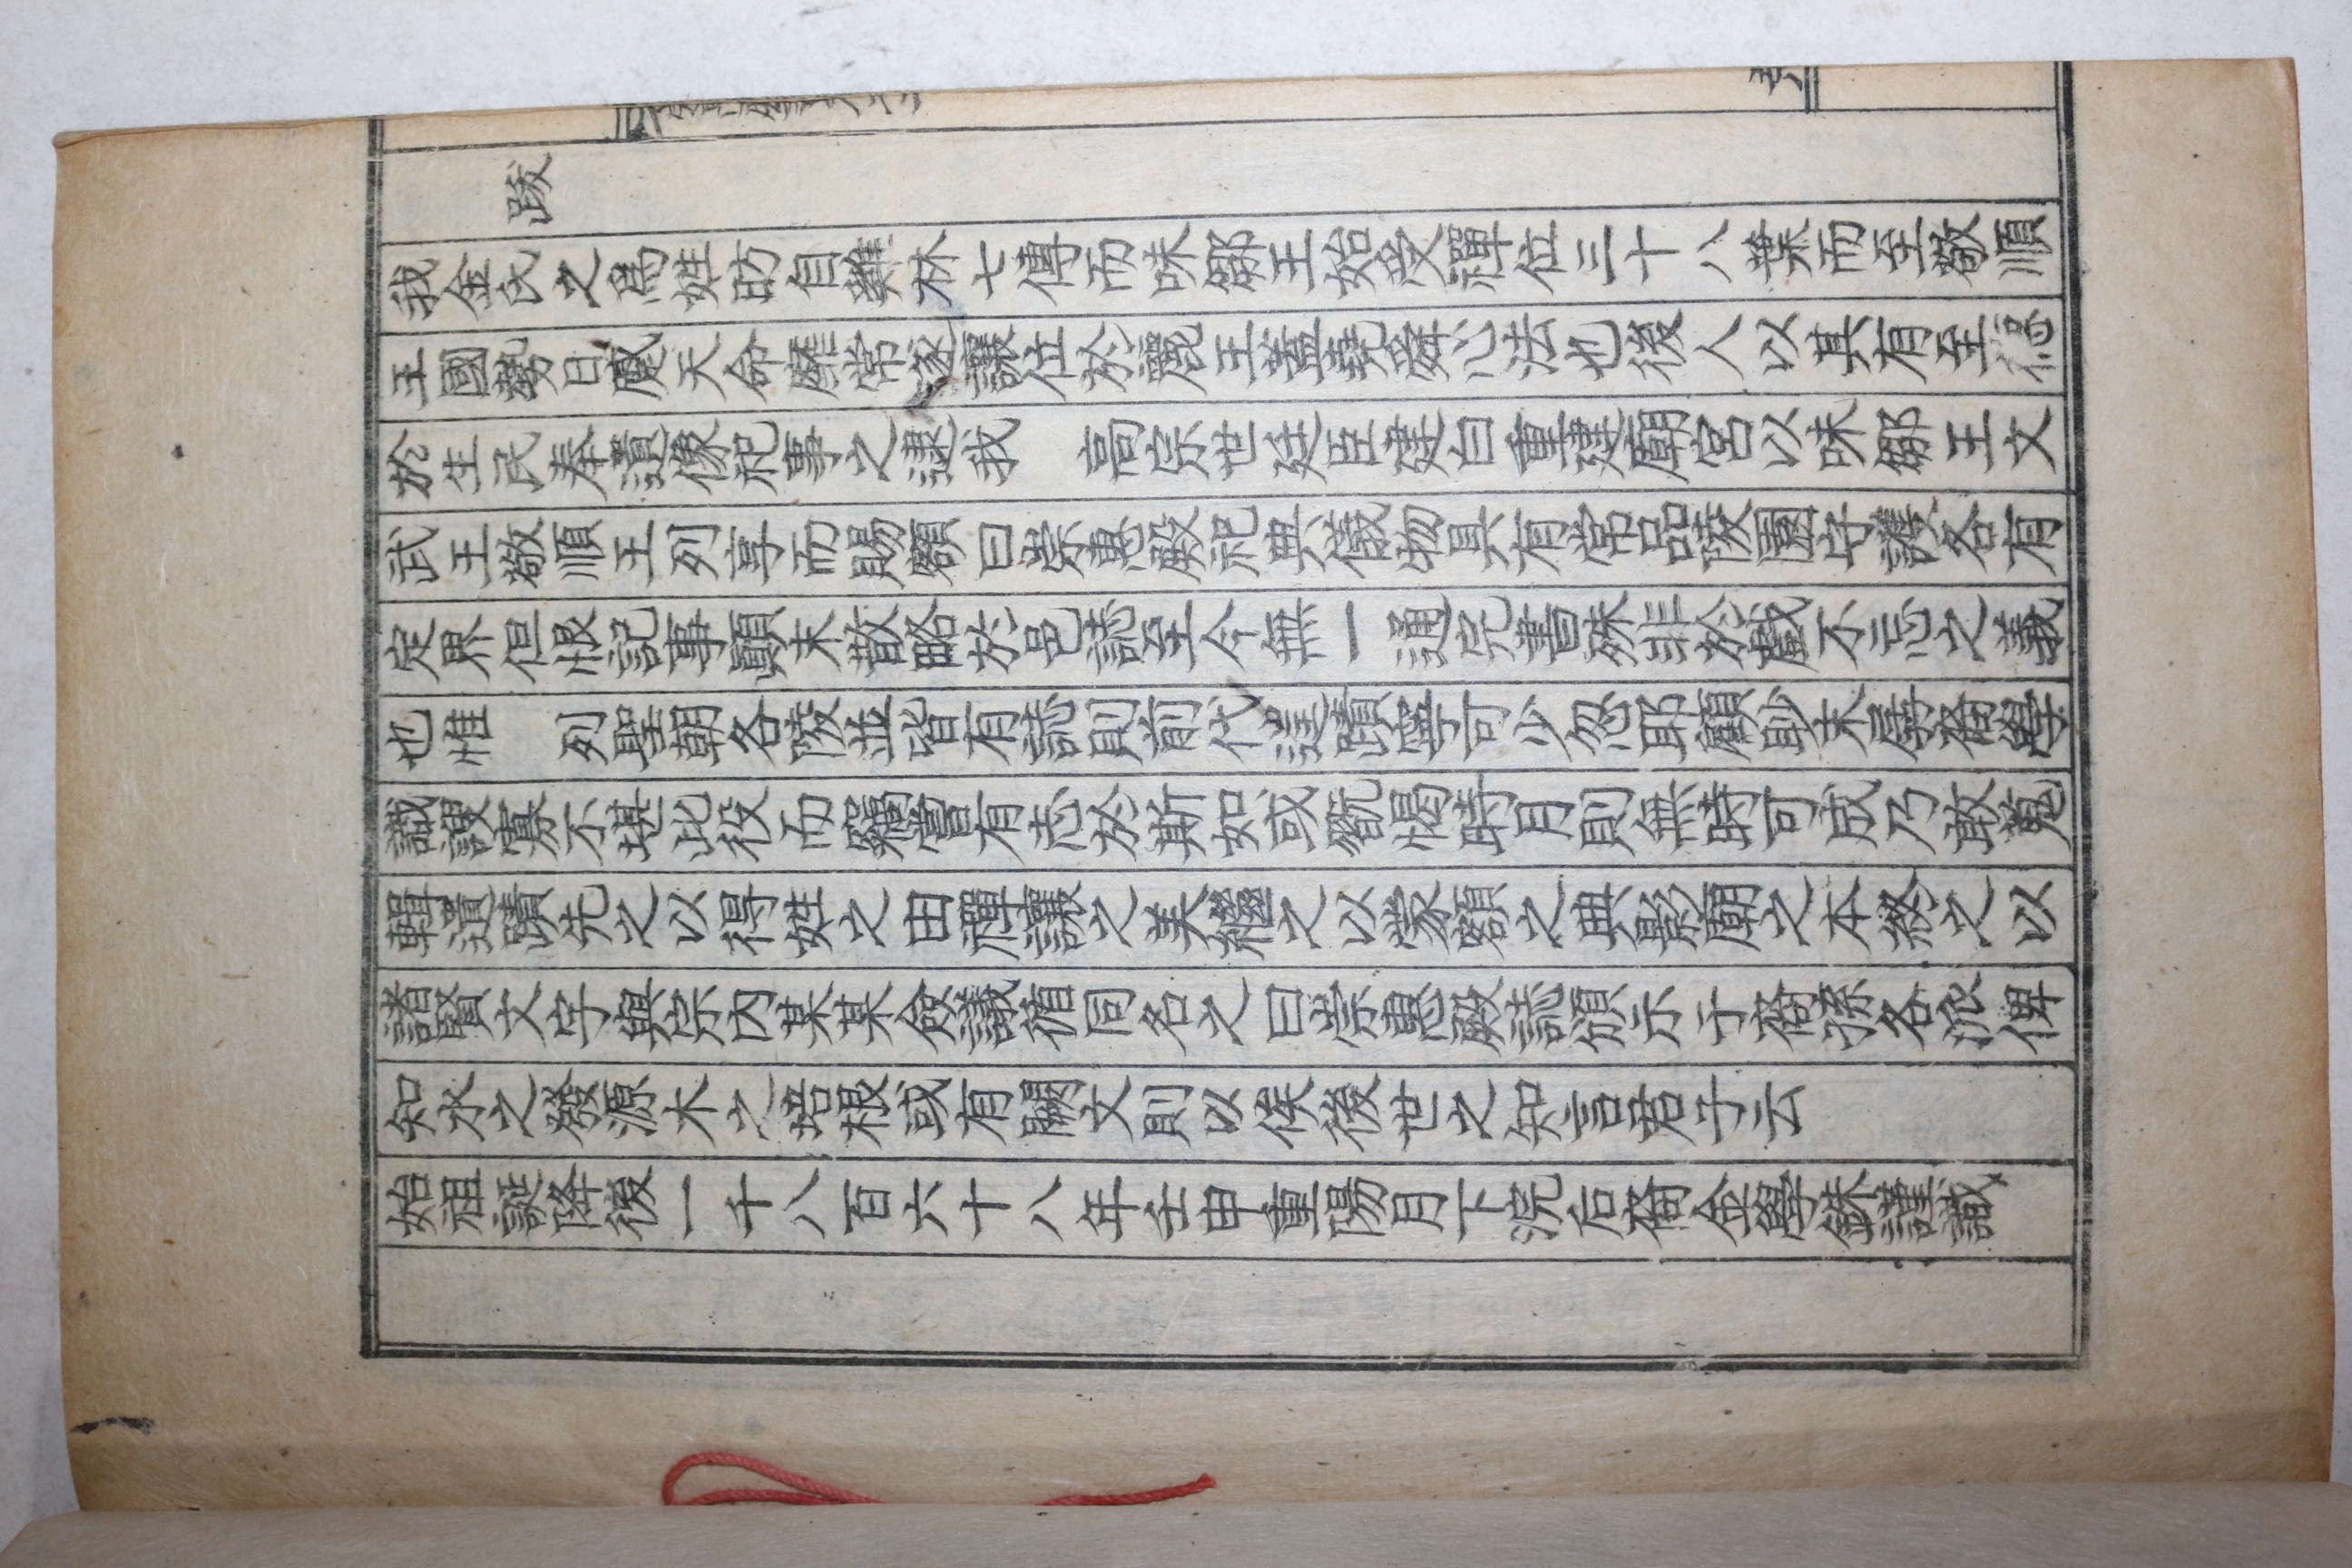 跋
我金氏之爲姓昉自雞林七傳而味鄒王始受禪位三十八葉而至敬順
王國勢日蹙天命靡常遂讓位於麗王蓋堯舜心法也後人以其有至德
於生民奉遺像祀事之逮我　高宗世廷臣建白重建廟宮以味鄒王文
武王敬順王列享而賜額曰崇惠殿祀典儀物具有常品陵園守護各有
定界但恨記事顚末散略於邑誌至今無一通完書殊非於戲不忘之義
也惟　列聖朝各陵並皆有誌則前代遑蹟寧可少忽耶顧眇末孱裔學
識謏寡不堪此役而竊嘗有志於斯如或翫愒時月則無時可成乃敢蒐
輯遺蹟先之以得姓之由禪讓之美繼之以蒙額之典影廟之本終之以
諸賢文字與宗內某某僉議循同名之曰崇惠殿誌頒示于裔孫各派俾
知水之發源木之培根或有闕文則以俟後世之知言君子云
始祖誕降後一千八百六十八年壬申重陽月下浣后裔金學銖謹識